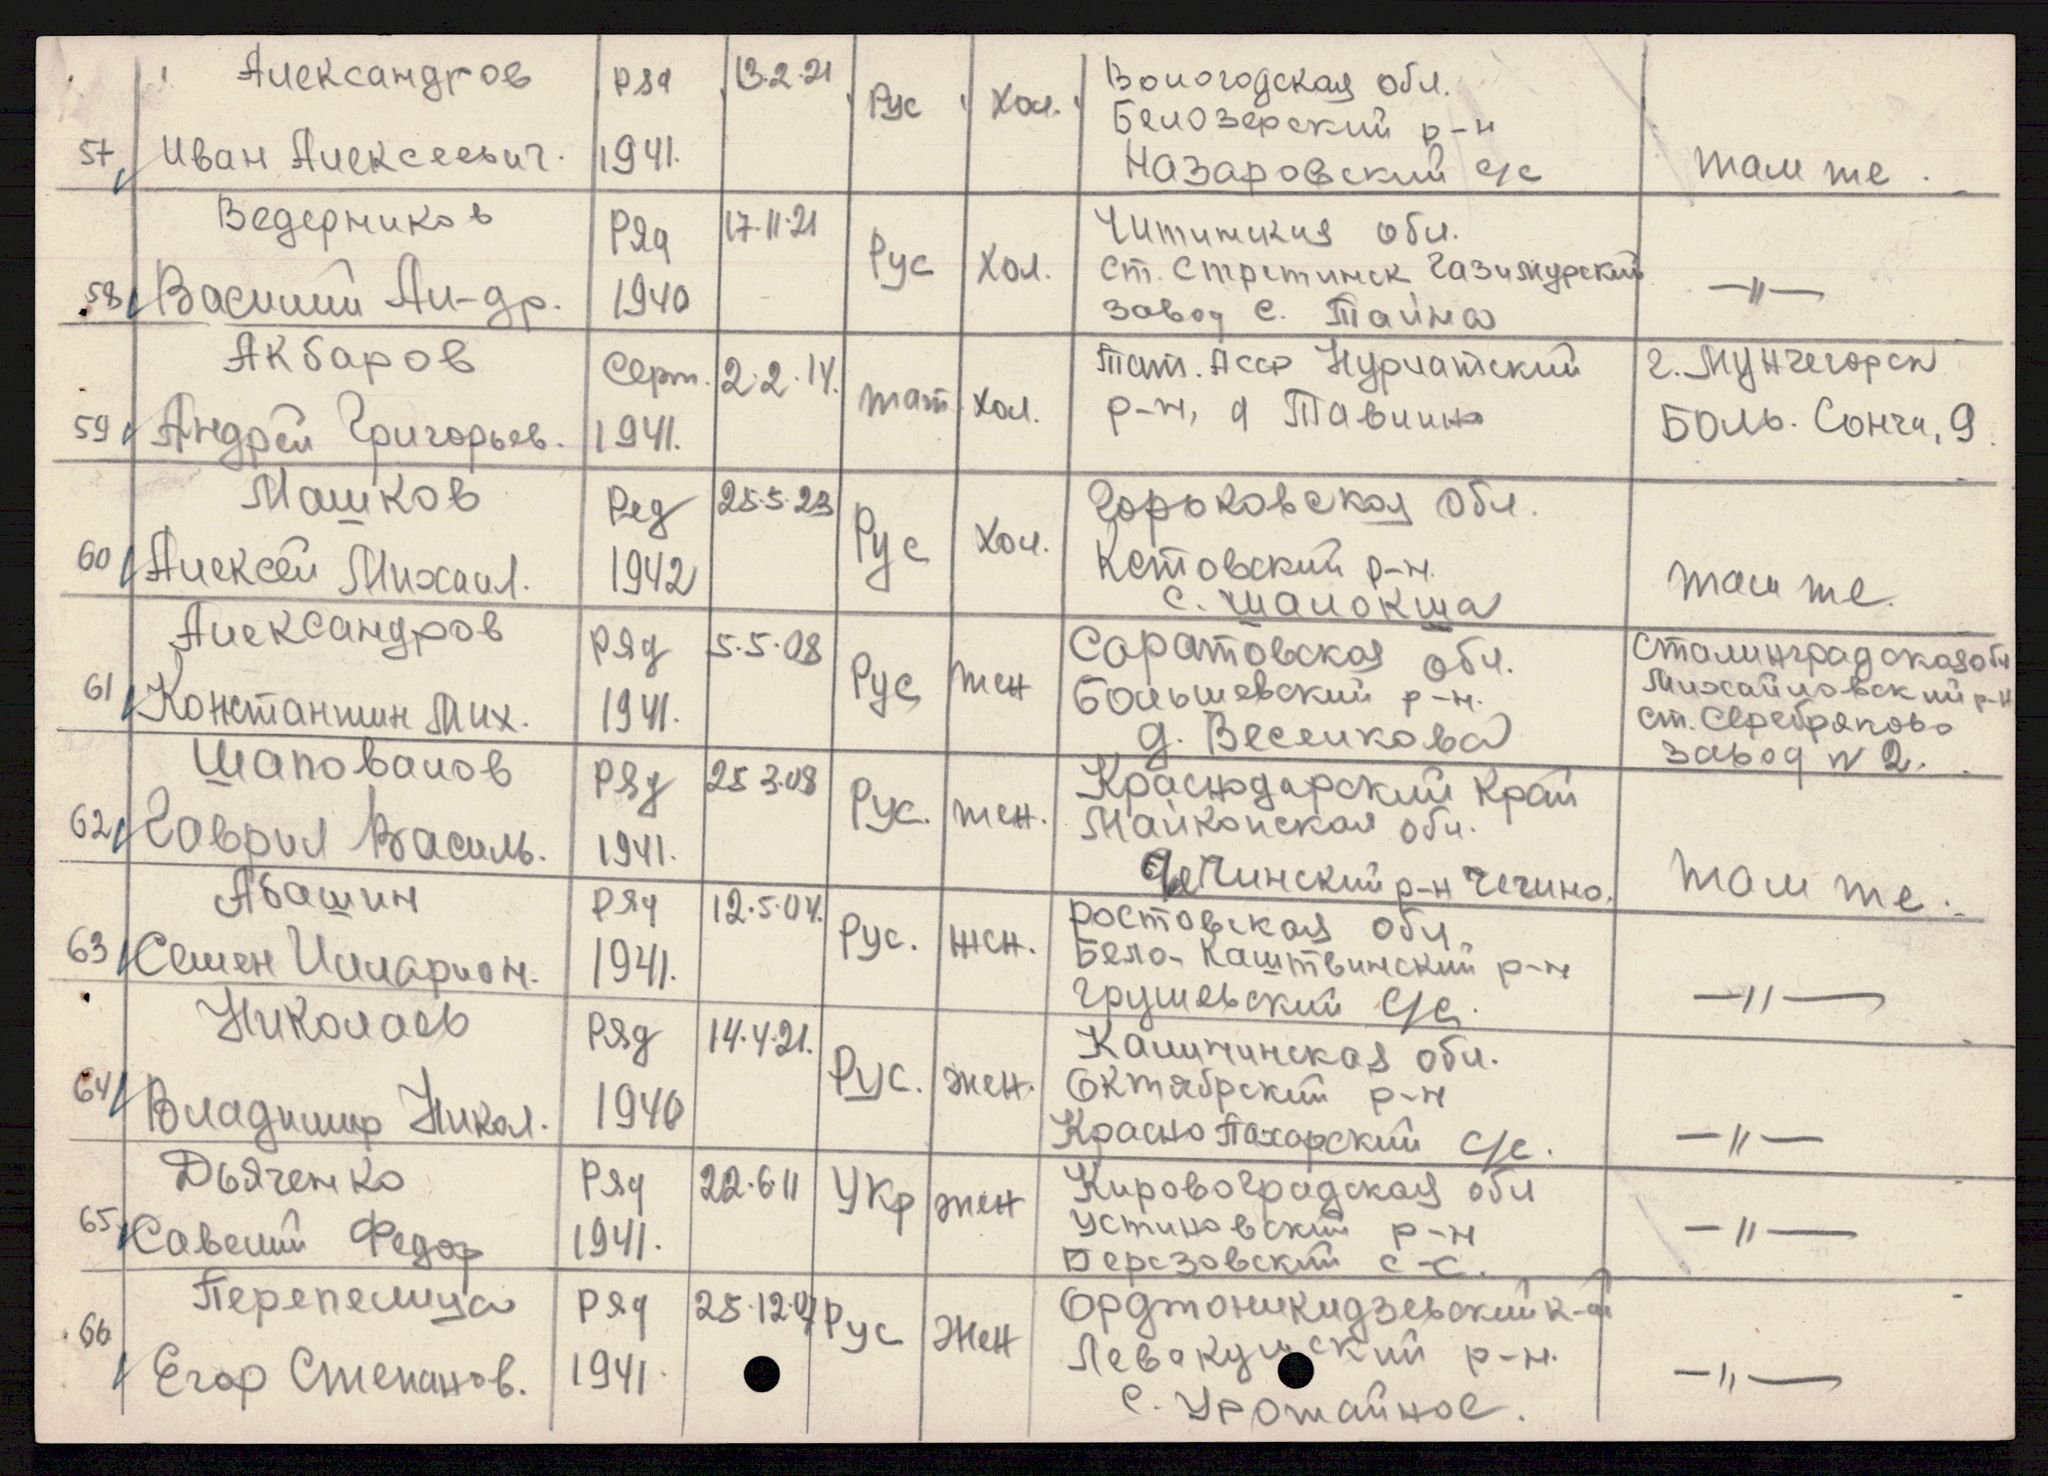 57 Александров Ряд 13.2.21 Рус Хол. Вологодская обл.
Белозерский р-н
Иван Алексеевич. 1941. Назаровский с/с там же.
58 Ведерников Ряд 17.11.21 Рус Хол. Читинская обл.
ст. Стретинск Газимурский
Василий Ал-др. 1940 завод с. Тайна —〃—
59 Акбаров Серт. 2.2.14. тат. Хол. Тат. Асср Нурлатский г. Мунчегорск
Андрей Григорьев. 1941. р-н, д Боль. Сонча, 9.
60 Машков Ряд 25.5.23 Рус Хол. Горьковская обл.
Кстовский р-н.
Алексей Михаил. 1942 с. Шалокша там же.
61 Александров Ряд 5.5.08 Рус жен Саратовская обл. Сталинградская обл
Большевский р-н. Михайловский р-н
Константин Мих. 1941. д. Веселкова ст. Серебряково
завод N 2.
62 Шаповалов Ряд 25 3.08 Рус. жен. Краснодарский край
Майкопская обл.
Гаврил Василь. 1941. р-н там же.
63 Абашин Ряд 12.5.04. Рус. жен. Ростовская обл
Бело-Каштвинский р-н
Семен Илларион. 1941. Грушевский с/с. —〃—
64 Николаев Ряд 14.4.21. Рус. жен. Калининская обл.
Октябрский р-н
Владимир Никол. 1940 Красно Пахарский с/с. —〃—
65 Дьяченко Ряд 22.6.11 Укр жен Кировоградская обл
Устиновский р-н
Савелий Федор 1941. Березовский с-с. —〃—
66 Перепелица Ряд 25.12.07 Рус Жен Орджоникидзевский к-й
р-н.
Егор Степанов. 1941. с. Урожайное. —〃—